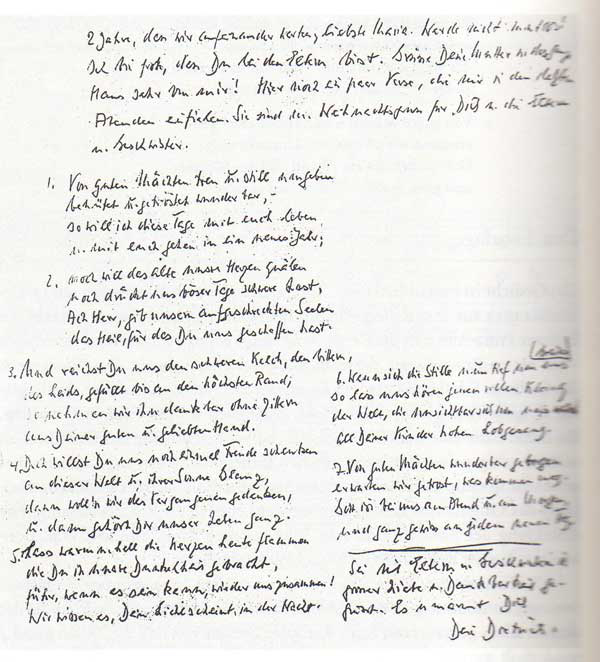 2 Jahre, daß wir aufeinander warten, liebste Maria. Werde nicht mutlos!
Ich bin froh, daß Du bei den Eltern bist. Grüße Deine Mutter u. das ganze
Haus sehr von mir! Hier noch ein paar Verse, die mir in den letzten
Abenden einfielen. Sie sind der Weihnachtsgruß für Dich u. die Eltern
u. Geschwister.
1. Von guten Mächten treu u. still umgeben
behütet u. getröstet wunderbar, –
so will ich diese Tage mit euch leben
u. mit euch gehen in ein neues Jahr;
2. noch will das alte unsre Herzen quälen
noch drückt uns böser Tage schwere Last,
Ach Herr, gib unsern aufgeschreckten Seelen
das Heil, für das Du uns geschaffen hast.
3. Und reichst Du uns den schweren Kelch, den bittern,
des Leids, gefüllt bis an den höchsten Rand,
so nehmen wir ihn dankbar ohne Zittern
aus Deiner guten u. geliebten Hand.
4. Doch willst Du uns noch einmal Freude schenken
an dieser Welt u. ihrer Sonne Glanz,
dann woll'n wir des Vergangenen gedenken,
u. dann gehört Dir unser Leben ganz.
5. Lass warm u. hell die Kerzen heute flammen
die Du in unsre Dunkelheit gebracht,
führ, wenn es sein kann, wieder uns zusammen!
Wir wissen es, Dein Licht scheint in der Nacht.
6. Wenn sich die Stille nun tief um uns
so lass uns hören jenen vollen Klang
der Welt, die unsichtbar sich um uns weitet
all Deiner Kinder hohen Lobgesang.
7. Von guten Mächten wunderbar geborgen
erwarten wir getrost, was kommen mag.
Gott ist bei uns am Abend u. am Morgen
und ganz gewiss an jedem neuen Tag.
Sei mit Eltern u. Geschwistern in
grosser Liebe u. Dankbarkeit ge-
grüsst. Es umarmt Dich
Dein Dietrich.